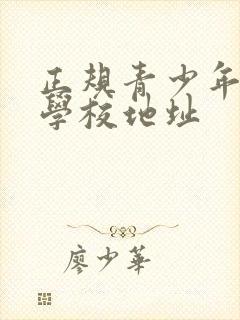 正規青少年
學校地址
廖少華